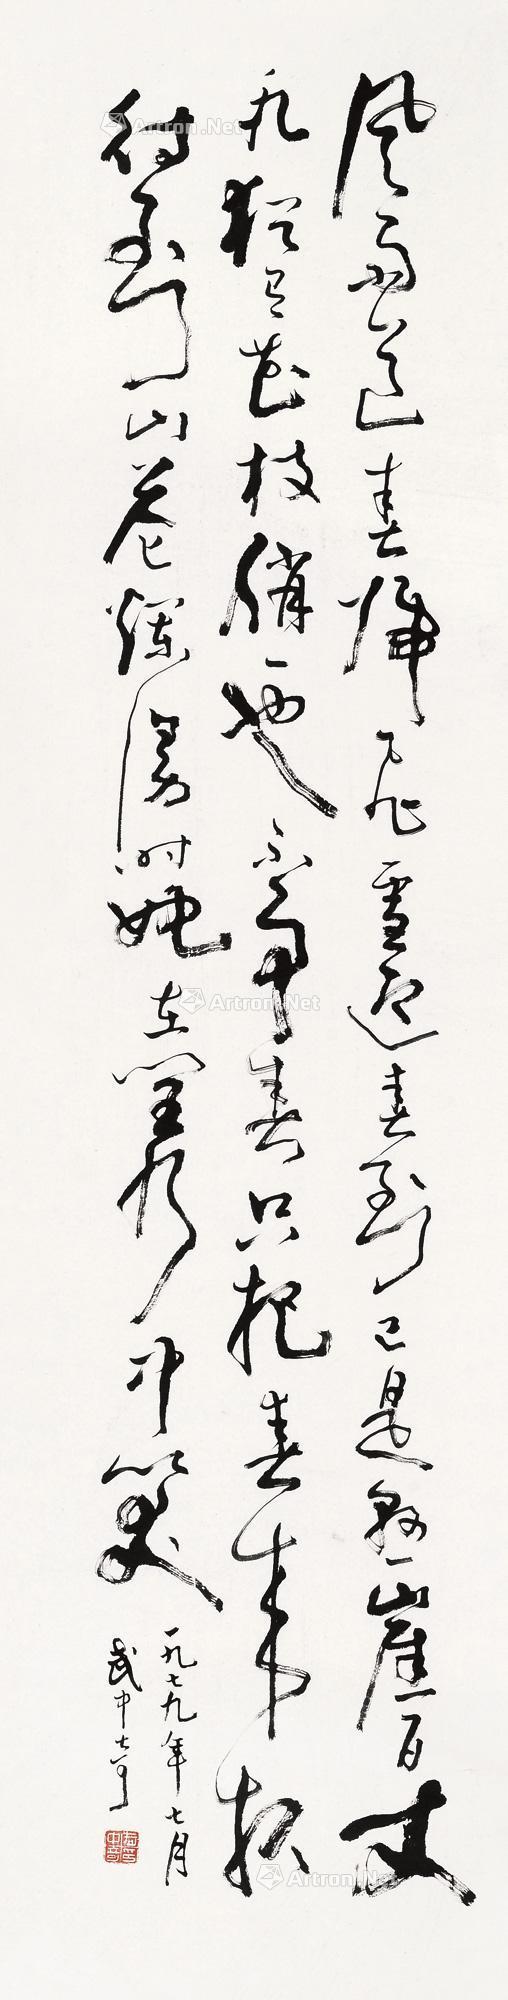 风雨送春归飞雪迎春到已是悬崖百丈
冰犹有花枝俏俏也不争春只把春来报
待到山花烂漫时她在丛中笑
一九七九年七月
武中奇
Artron.Net
Artron.Net
Artron.Net
Artron.Net